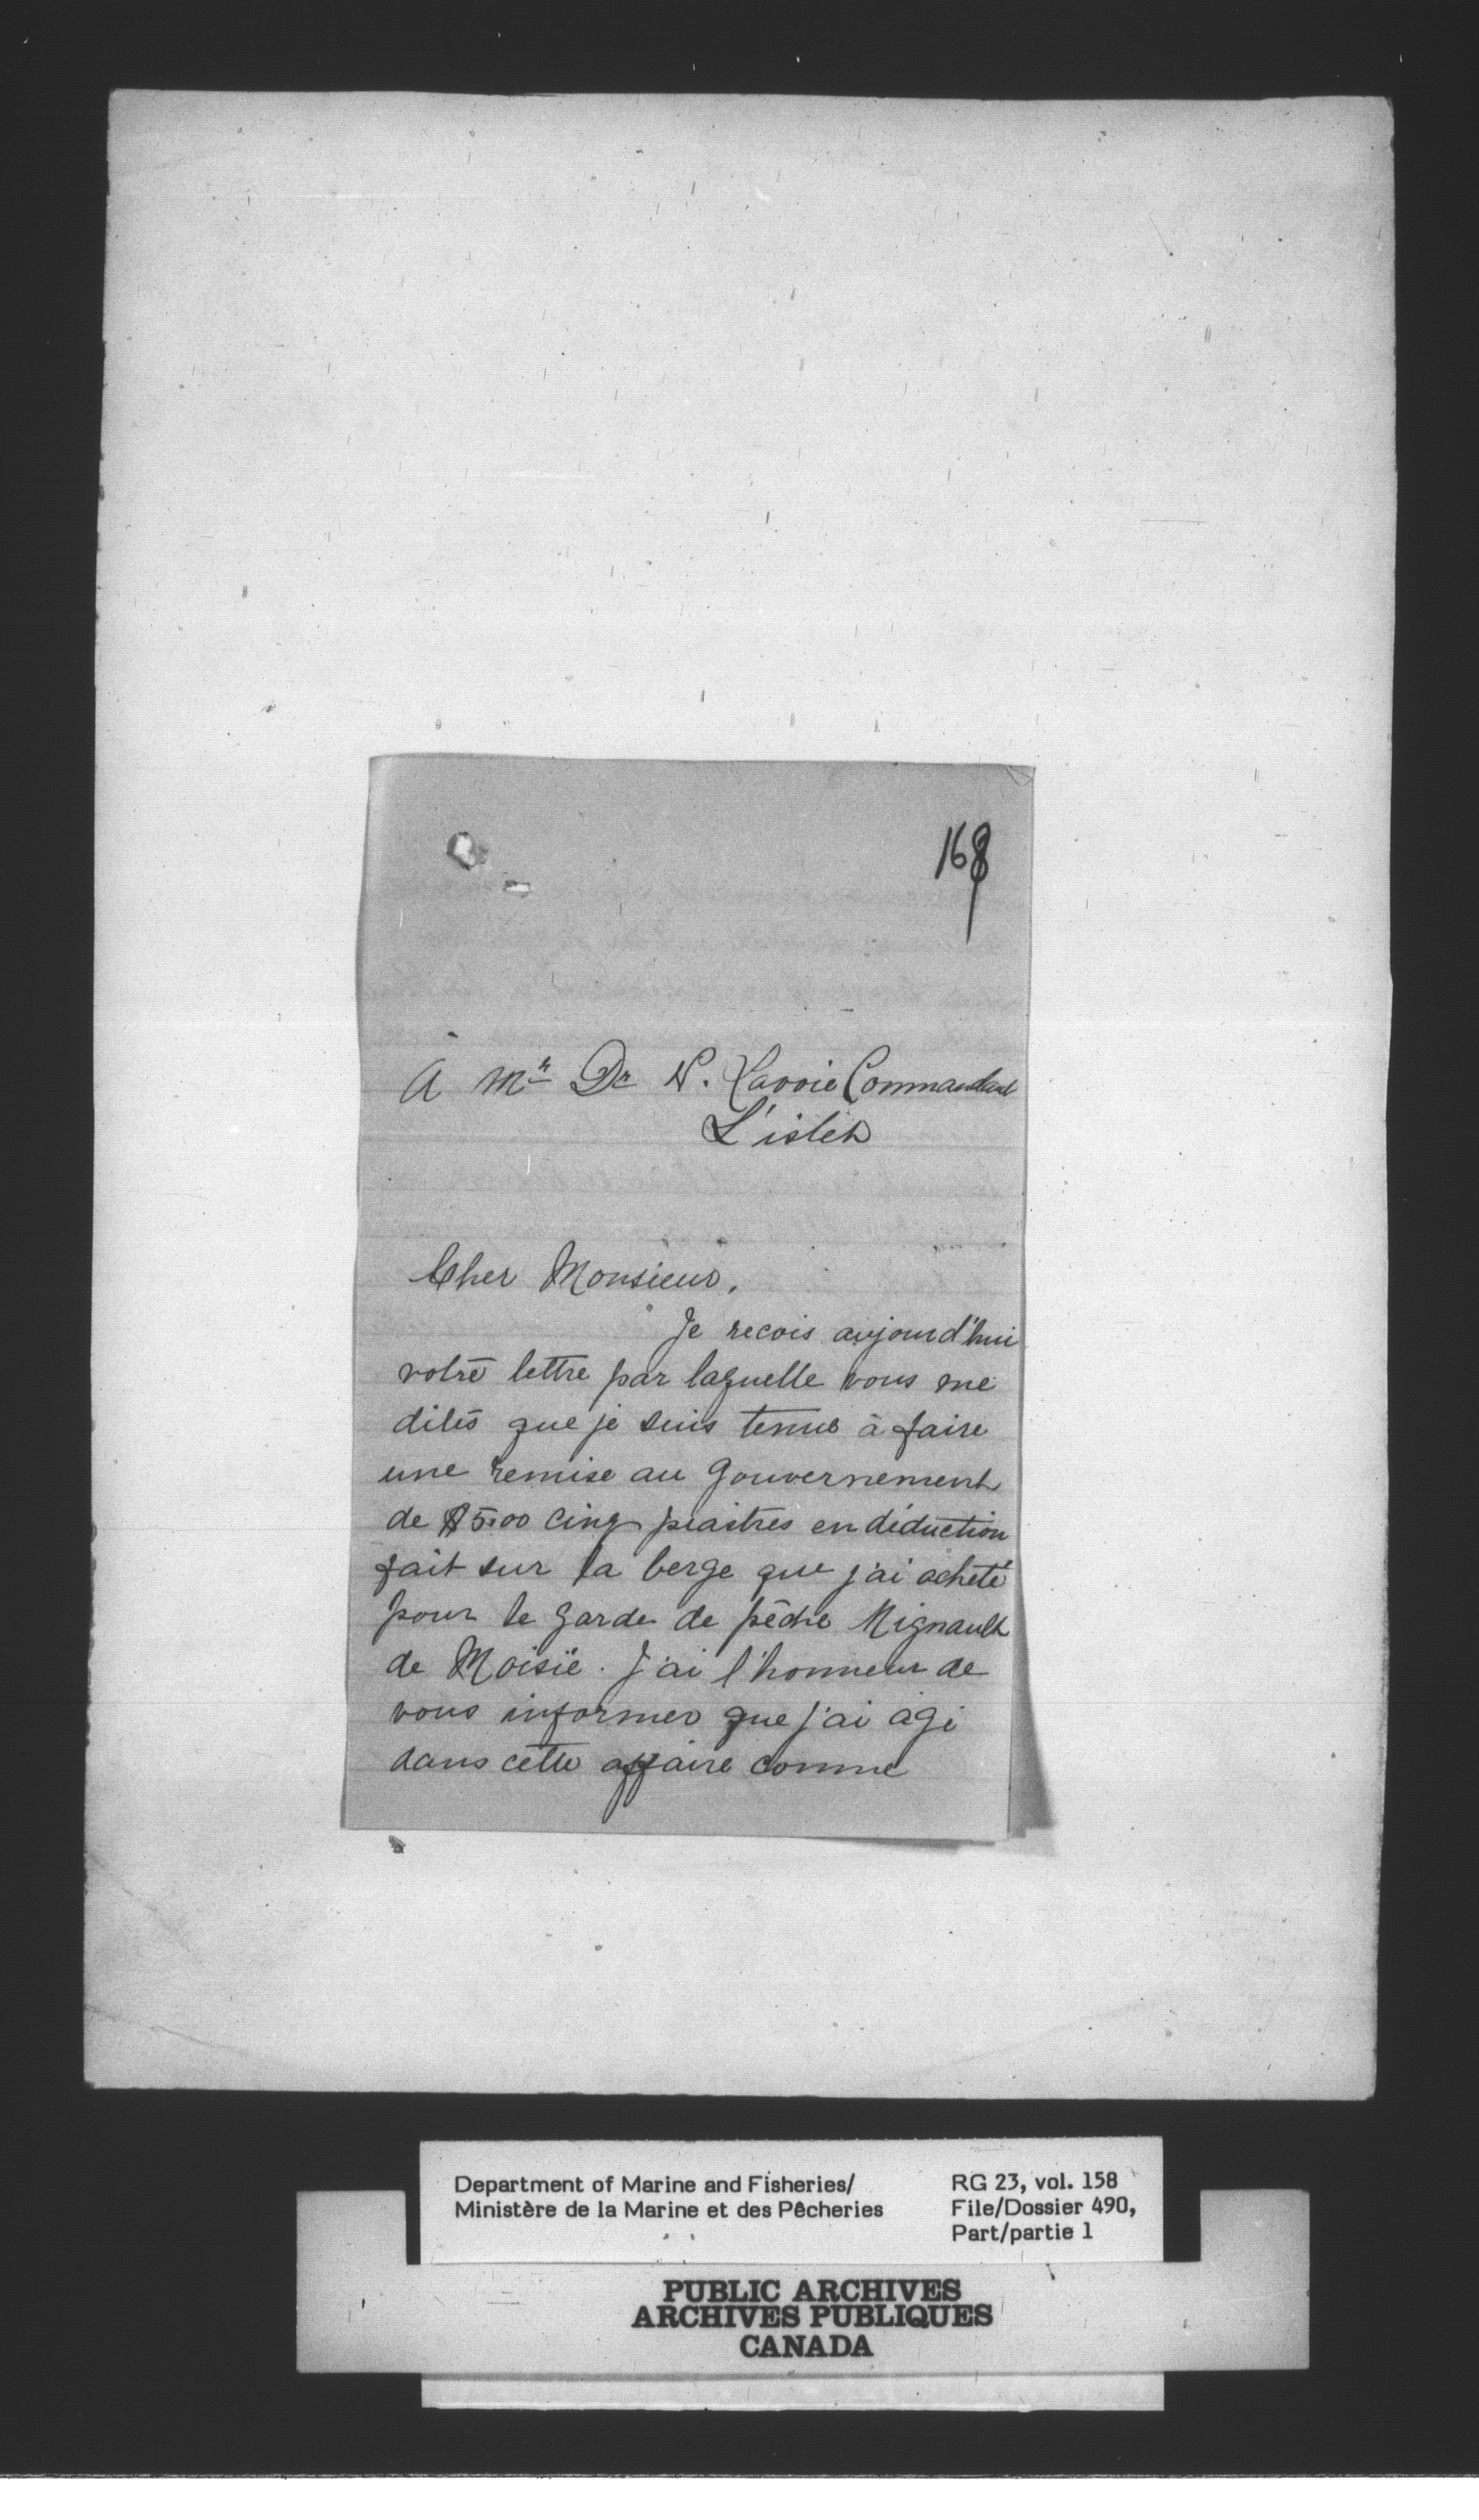 168
À Mr Dr N. Lavoie Commandant
L'islet
Cher Monsieur,
Je recois aujourd'hui
votre lettre par laquelle vous me
dites que je suis tenus à faire
une remise au Gouvernement
de $5.00 cinq piastres en déduction
fait sur la berge que j'ai acheté
pour le garde de pêche Mignault
de Moisïe. J'ai l'honneur de
vous informer que j'ai agi
dans cette affaire comme
Department of Marine and Fisheries/
Ministère de la Marine et des Pêcheries
RG 23, vol. 158
File/Dossier 490,
Part/partie 1
PUBLIC ARCHIVES
ARCHIVES PUBLIQUES
CANADA